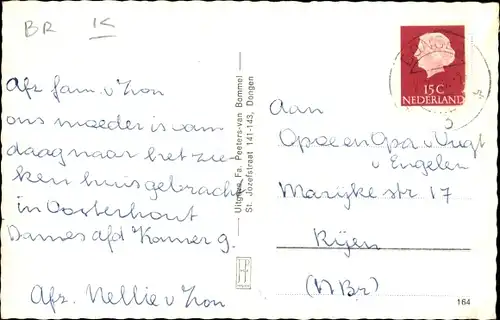 BR K
Afz fam. v Zon
ons moeder is van
daag naar het zie-
ken huis gebracht
in Oosterhout
Dames afd Kamer 9.
Afz. Nellie v Zon
Uitgave Fa. Peeters-van Bommel
St. Jozefstraat 141-143, Dongen
DONGEN
15 C
NEDERLAND
Aan
Opoe en Opa v Vugt
v Engelen
Marijke str 17
Rijen
(N Br)
164